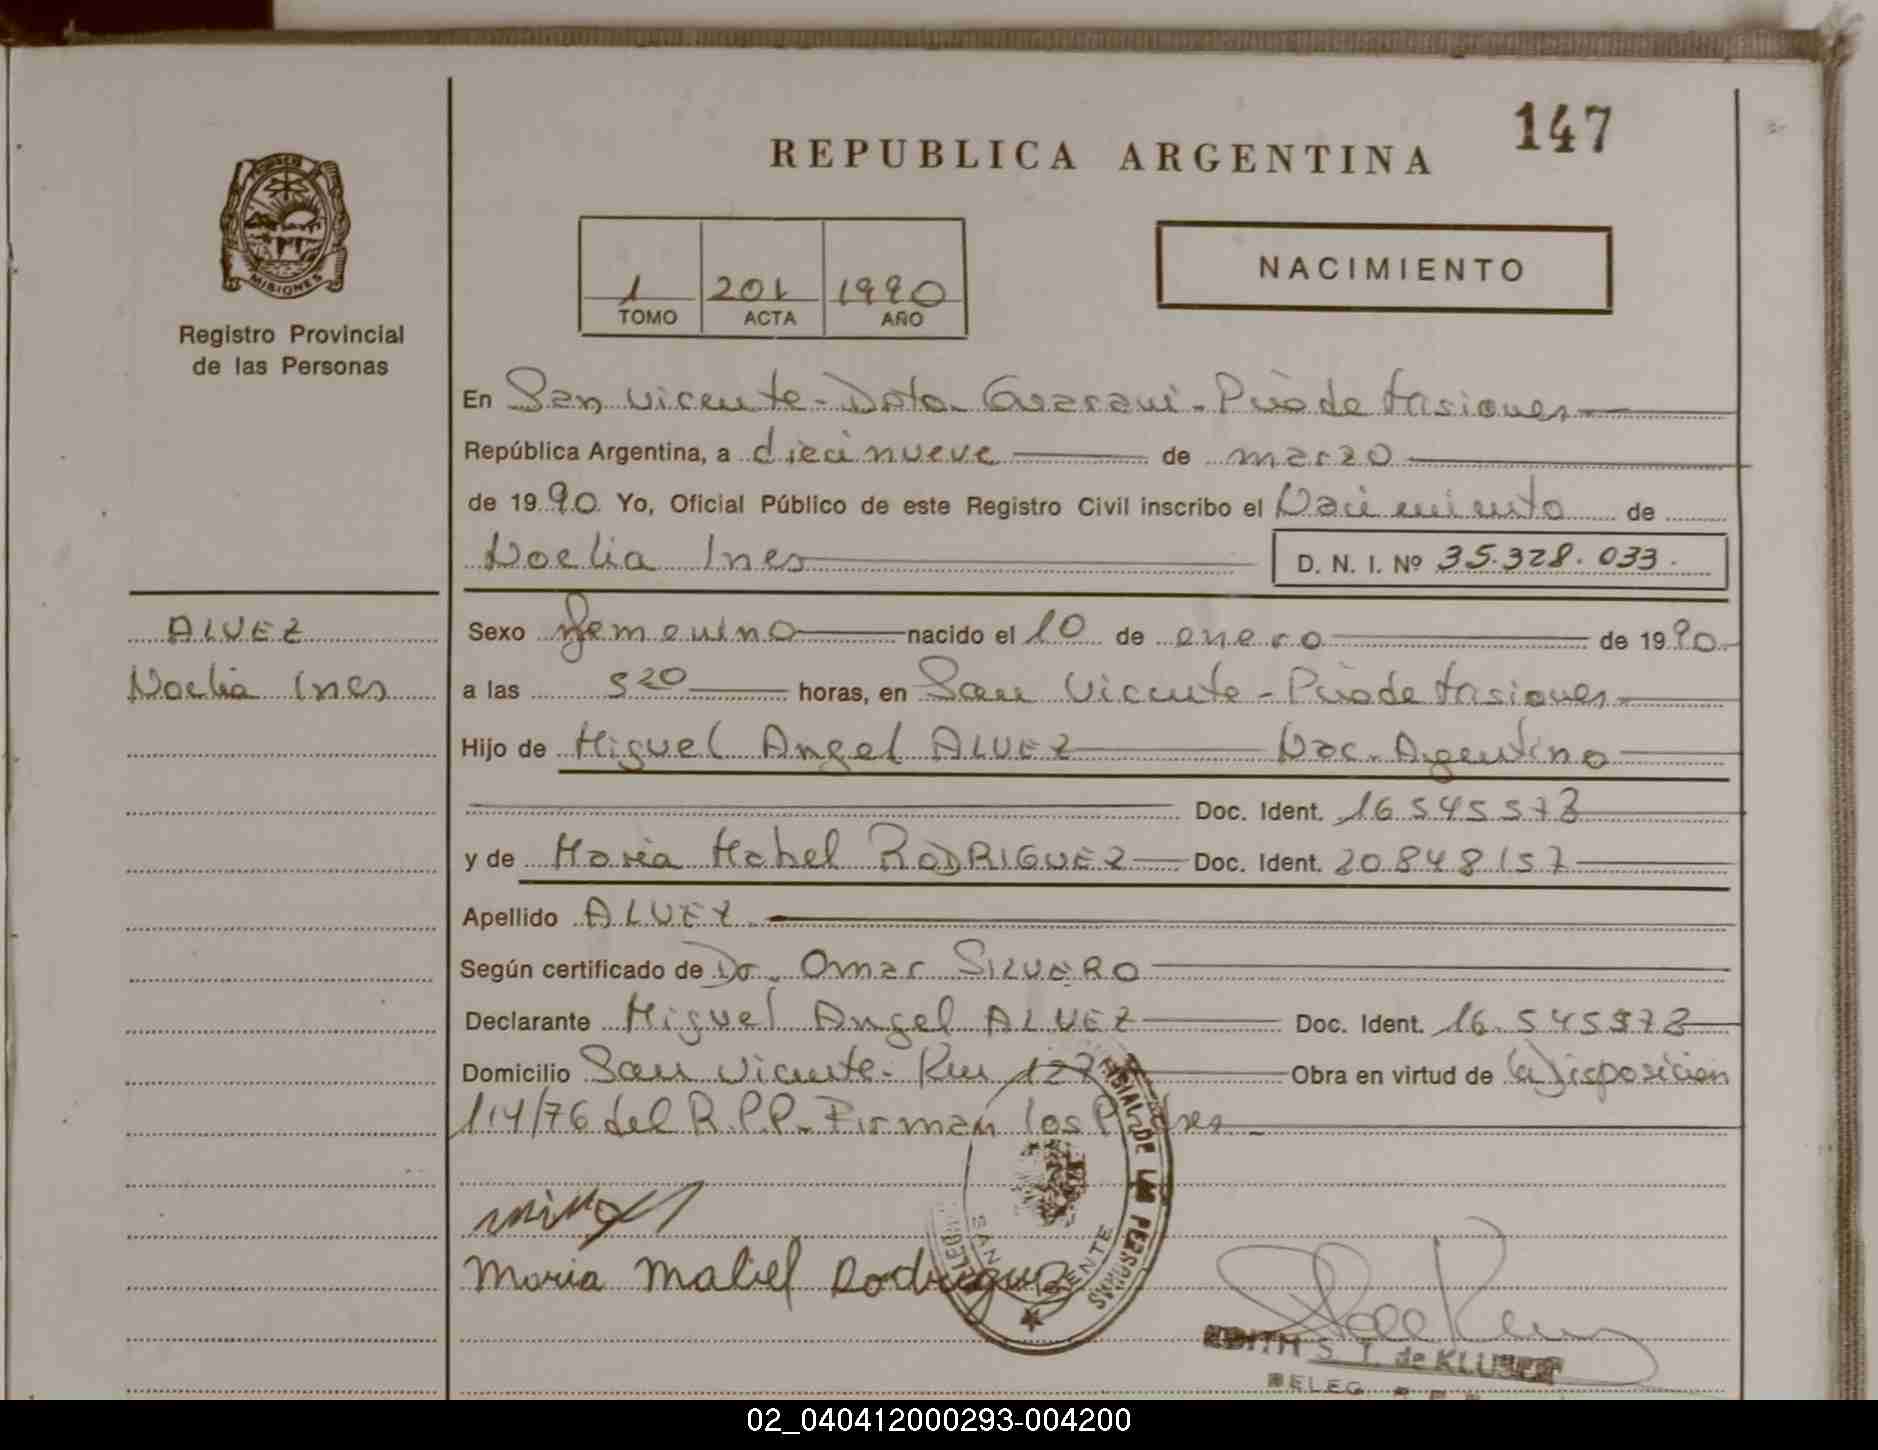 147
REPUBLICA ARGENTINA
MISIONES
Registro Provincial
de las Personas
1 201 1990
TOMO ACTA AÑO
NACIMIENTO
En San Vicente - Dpto. Guarani - Pcia de Misiones
República Argentina, a diecinueve de marzo
de 1990 Yo, Oficial Público de este Registro Civil inscribo el Nacimiento de
Noelia Ines D. N. I. Nº 35.328.033.
ALVEZ
Noelia Ines
Sexo femenino nacido el 10 de enero de 1990
a las 5 20 horas, en San Vicente - Pcia de Misiones
Hijo de Miguel Angel ALVEZ Nac. Argentino
Doc. Ident. 16545573
y de Maria Mabel RODRIGUEZ Doc. Ident. 20848157
Apellido ALVEZ
Según certificado de Dr. Omar SILVERO
Declarante Miguel Angel ALVEZ Doc. Ident. 16.545573
Domicilio San Vicente - Km 127 Obra en virtud de (a) Disposicion
114/76 del R.P.P. Firman los Padres
DE LAS PERSONAS
SAN VICENTE
Maria Mabel Rodriguez
EDITH S. T. de KLUSER
DELEG.
02_040412000293-004200